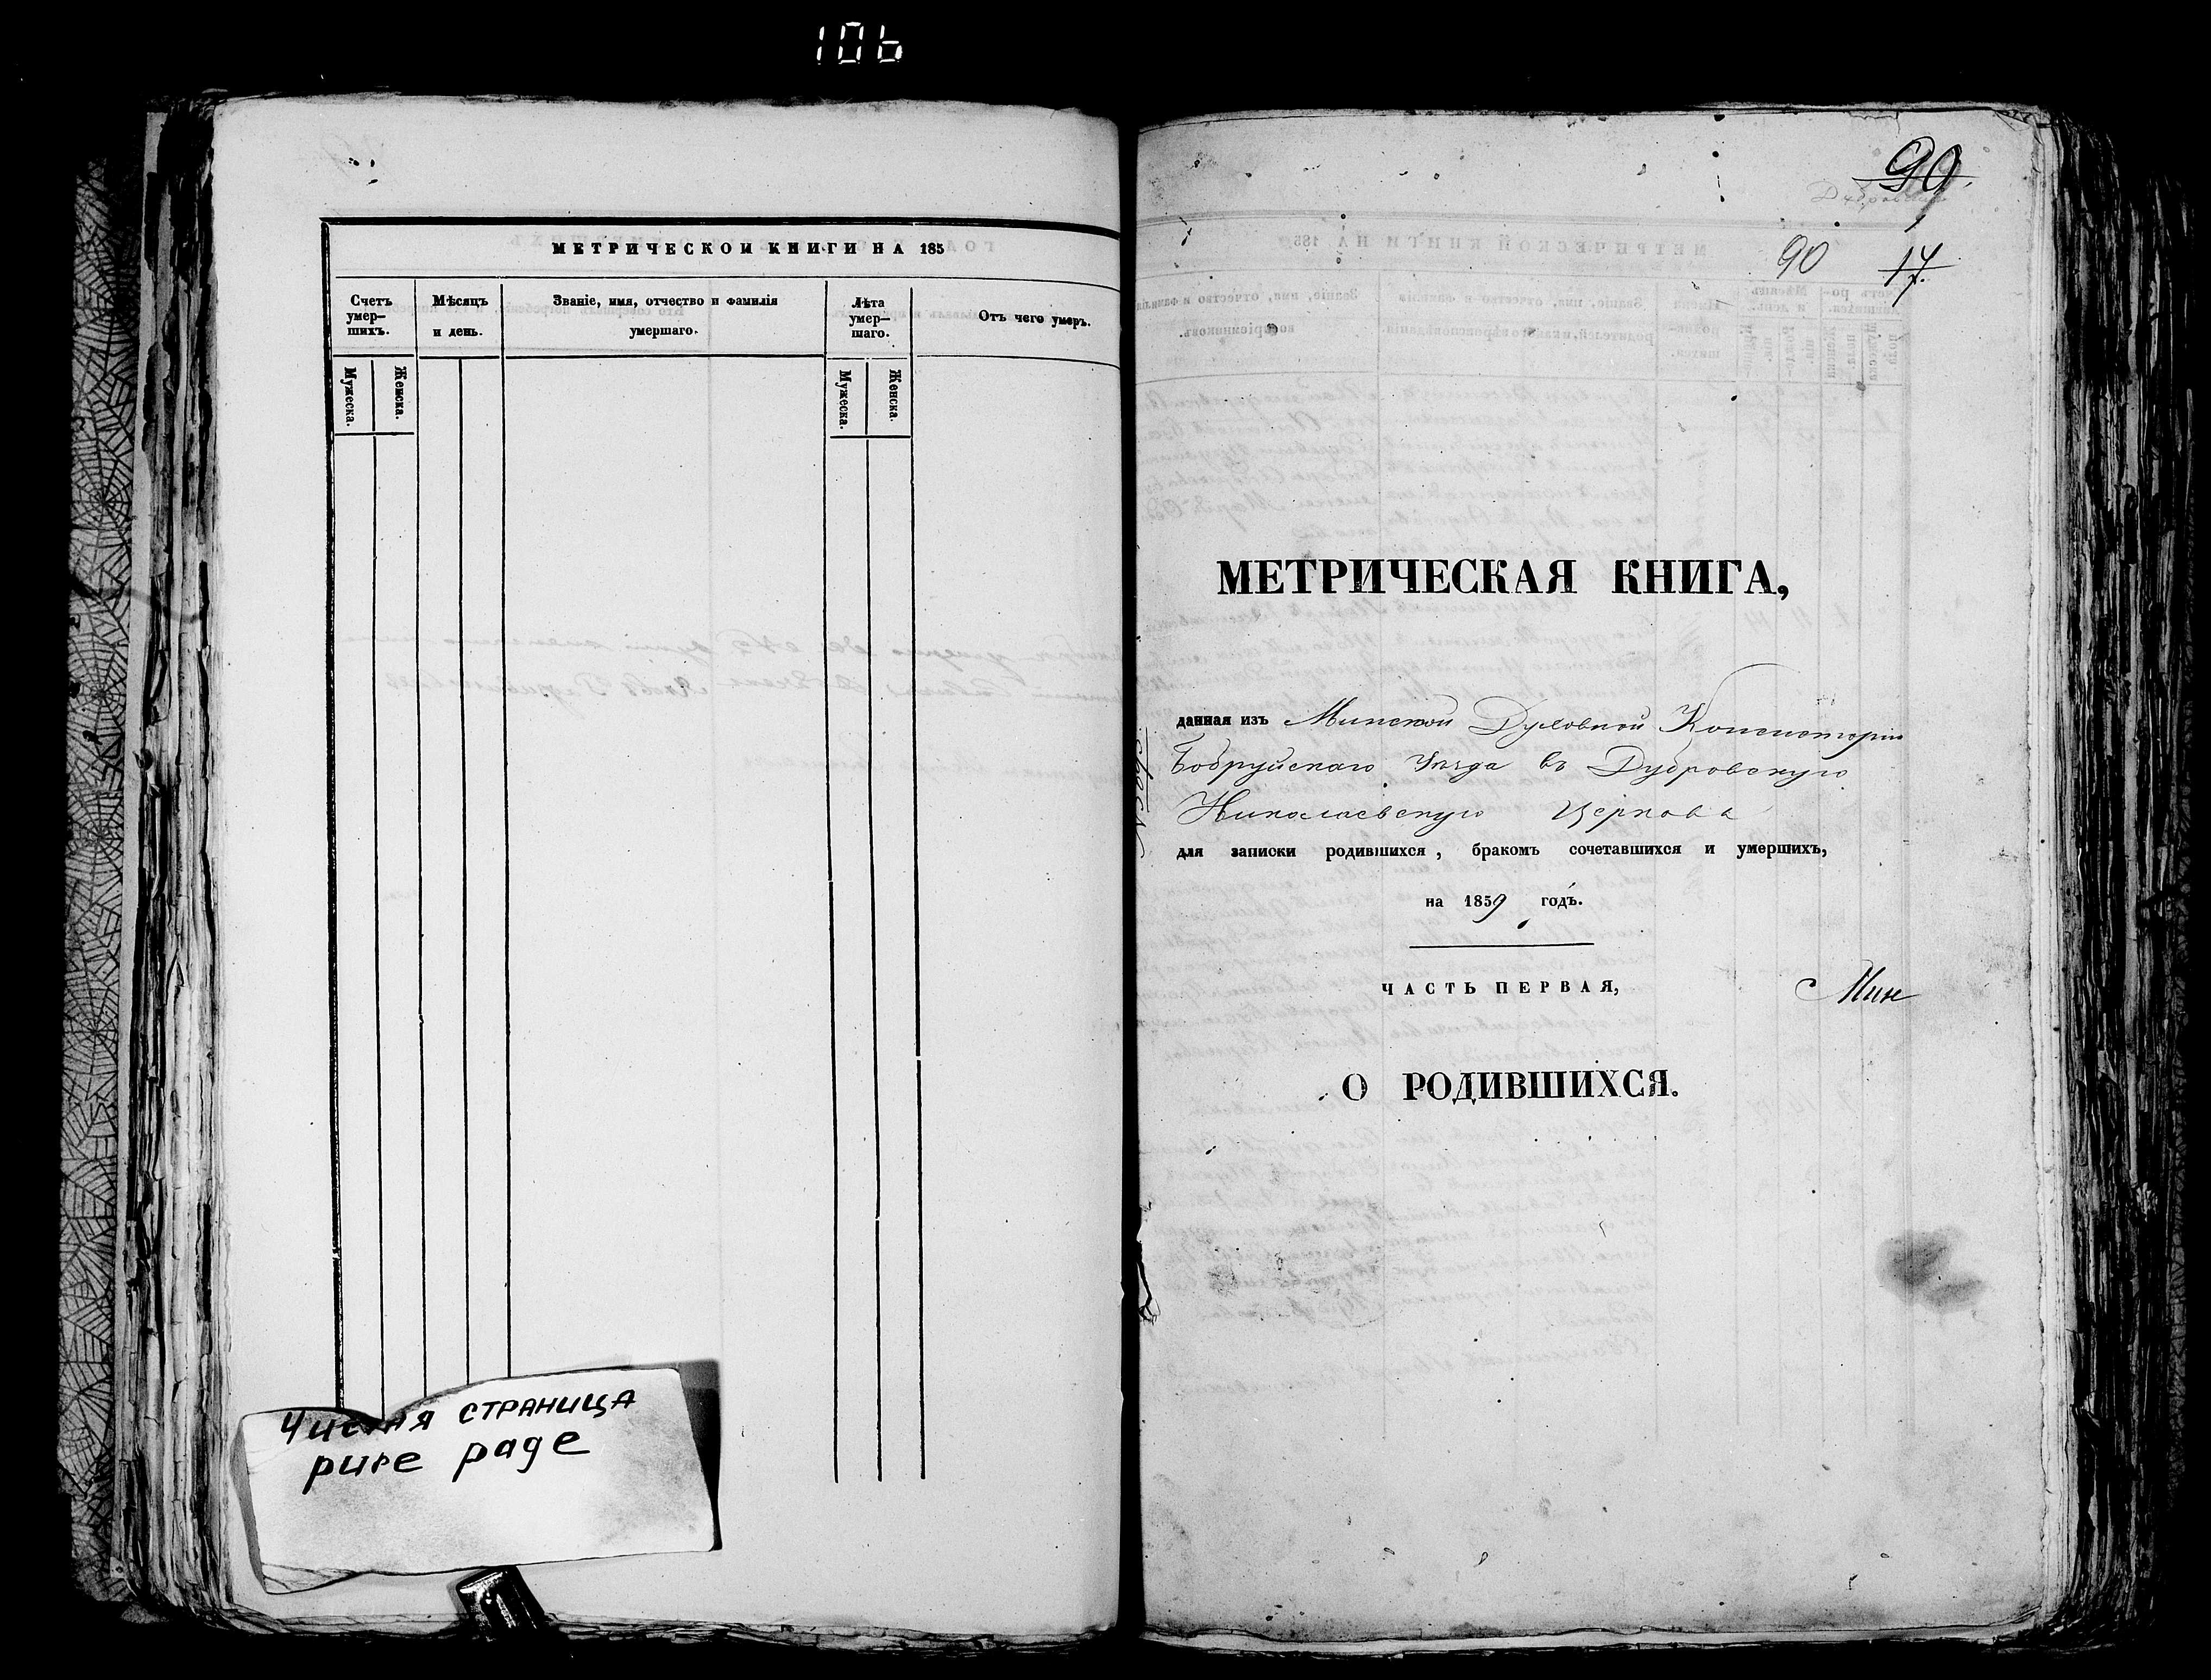 106
МЕТРИЧЕСКОЙ КНИГИ НА 185
Счетъ умер–шихъ.
Мѣсяцъ и день.
Званіе, имя, отчество и фамилія умершаго.
Лѣта умер–шаго.
Отъ чего умеръ.
Мужеска.
Женска.
Мужеска.
Женска.
Чистая страница
pure page
90
Дубровская
90
17.
МЕТРИЧЕСКАЯ КНИГА,
данная изъ Минской Духовной Консисторіи
Бобруйскаго Уѣзда въ Дубровскую
Николаевскую Церковь
для записки родившихся, бракомъ сочетавшихся и умершихъ,
на 1859 годъ.
ЧАСТЬ ПЕРВАЯ,
Мин
О РОДИВШИХСЯ.